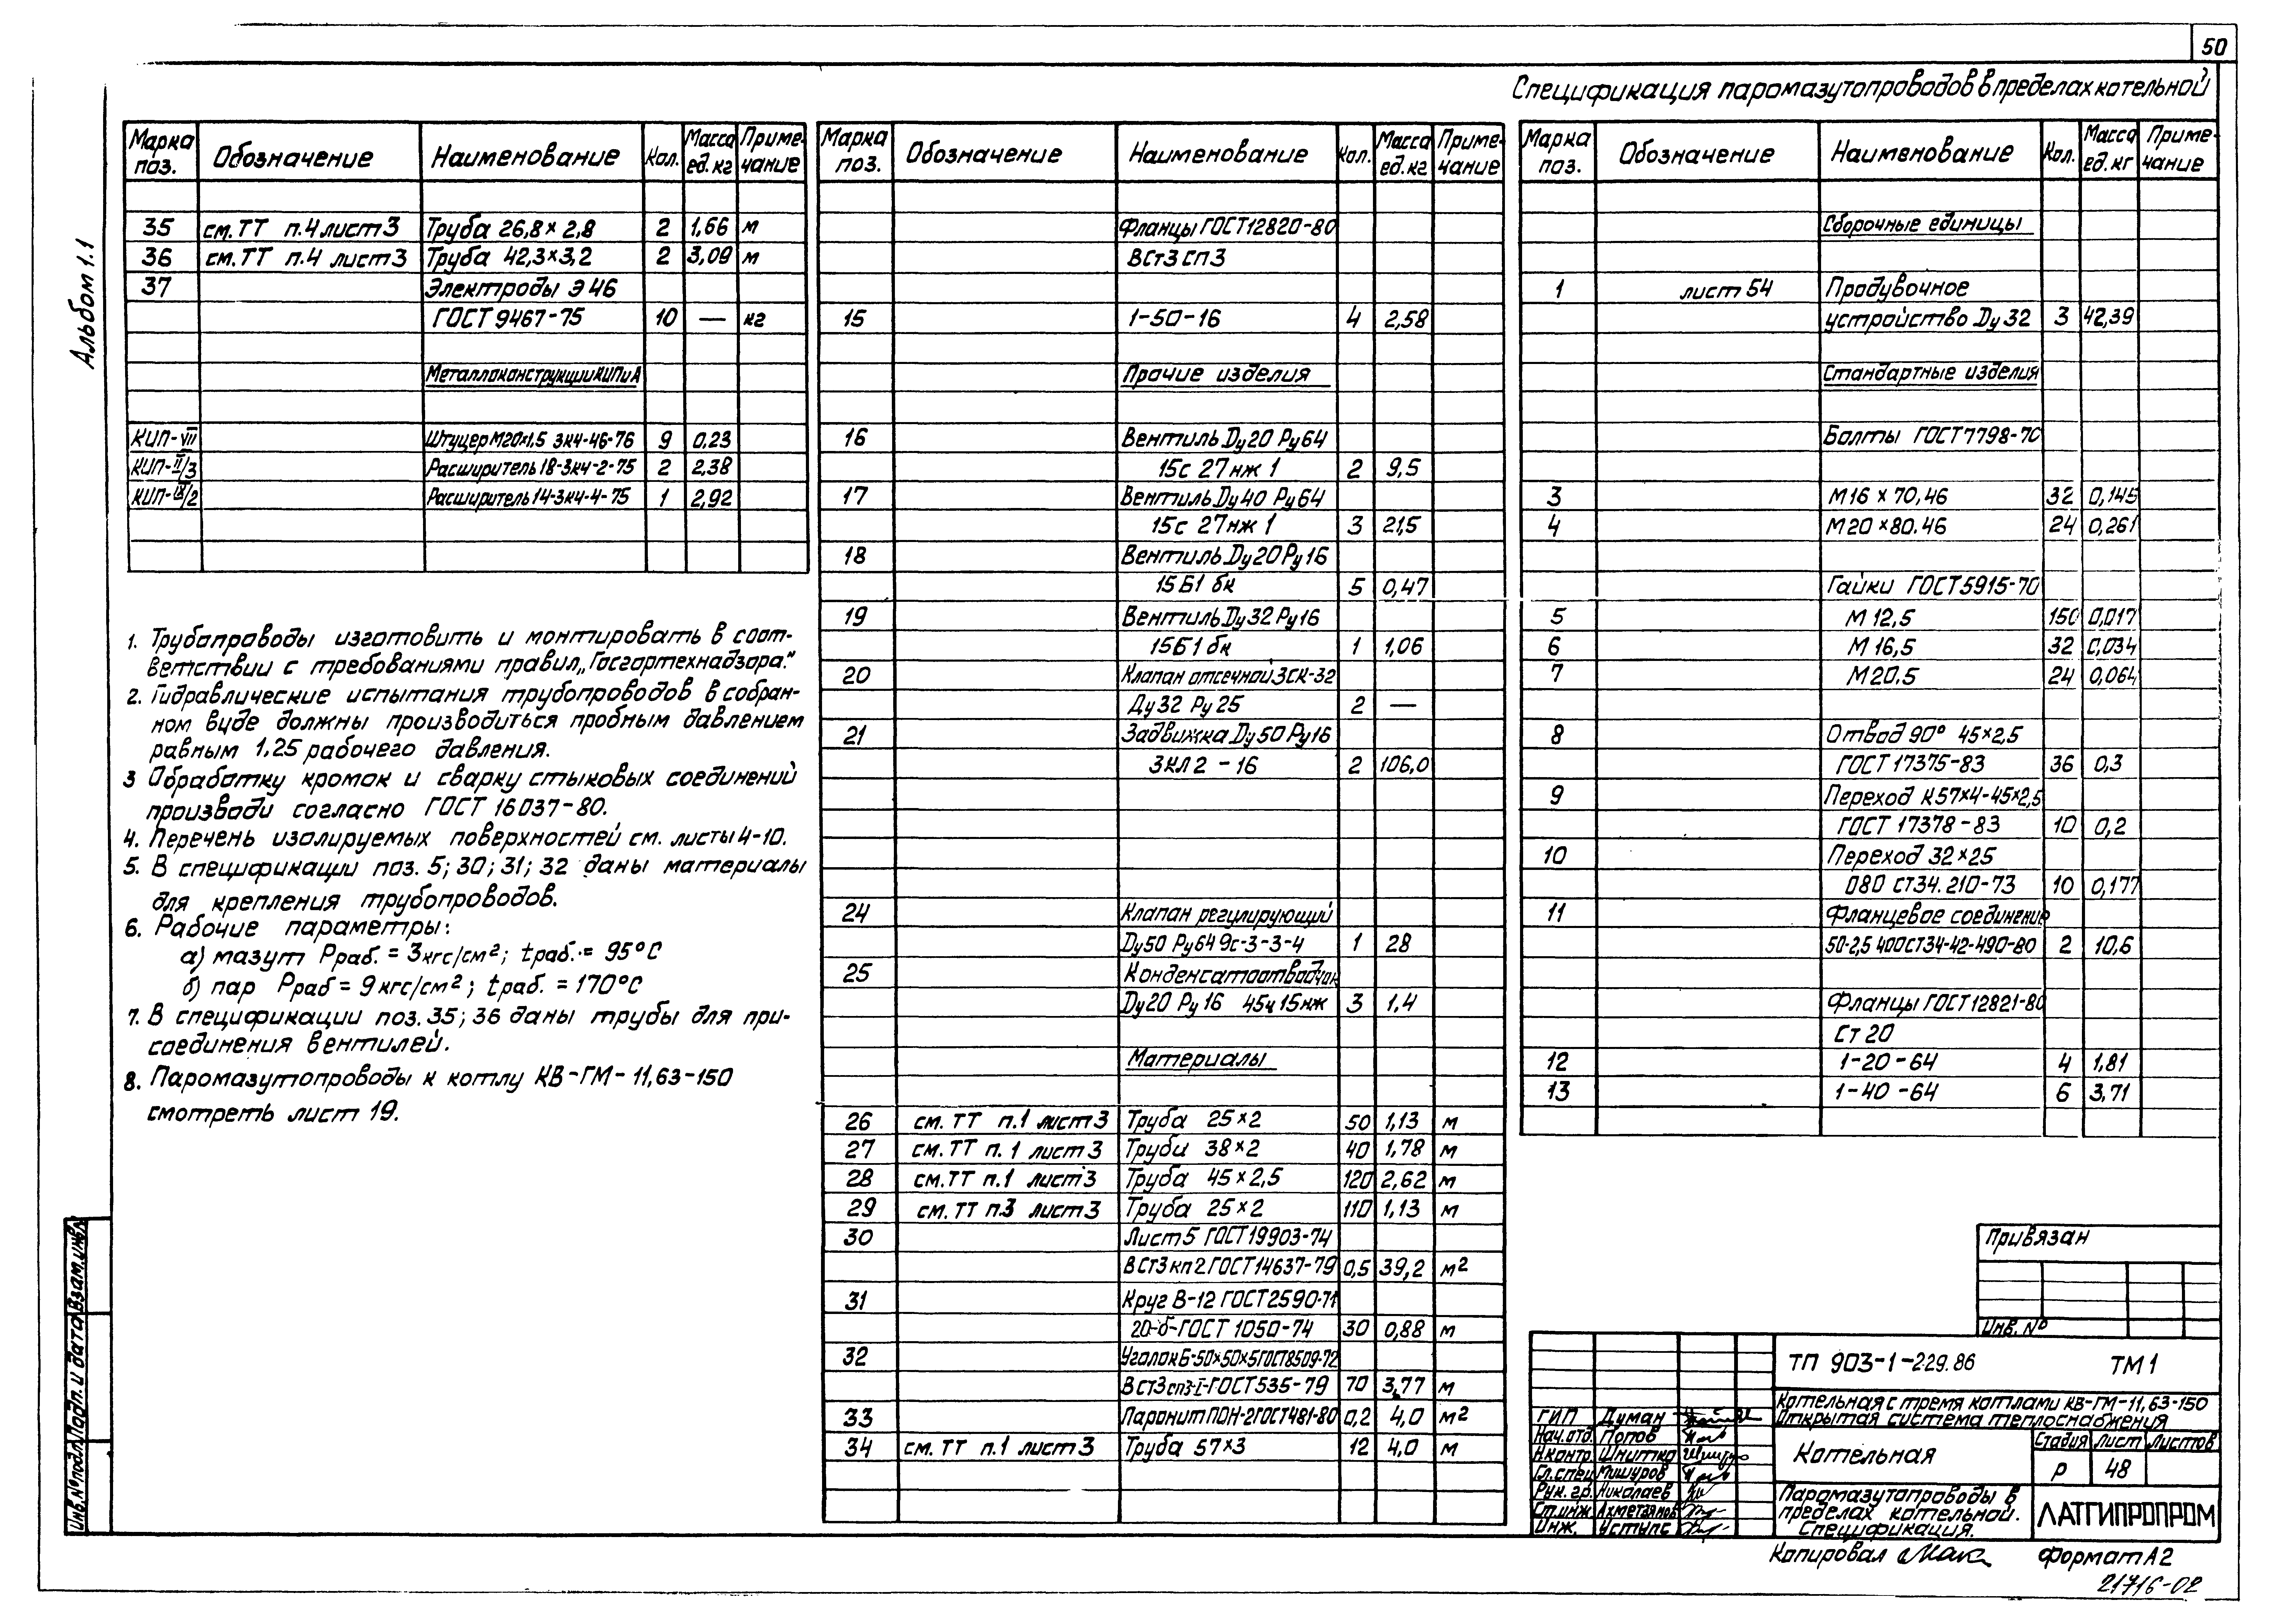 50
Спецификация паромазутопроводов в пределах котельной
Альбом 1.1
Марка поз. Обозначение Наименование Кол. Масса ед. кг Примечание
35 см. ТТ п.4 лист 3 Труба 26,8×2,8 2 1,66 м
36 см. ТТ п.4 лист 3 Труба 42,3×3,2 2 3,09 м
37 Электроды Э 46
ГОСТ 9467-75 10 — кг
Металлоконструкции КИПиА
КИП-VII Штуцер М20×1,5 ЗК4-46-76 9 0,23
КИП-II/3 Расширитель 18-ЗК4-2-75 2 2.38
КИП-/2 Расширитель 14-ЗК4-4-75 1 2,92
1. Трубопроводы изготовить и монтировать в соот-
ветствии с требованиями правил „Госгортехнадзора."
2. Гидравлические испытания трубопроводов в собран-
ном виде должны производиться пробным давлением
равным 1,25 рабочего давления.
3 Обработку кромок и сварку стыковых соединений
производи согласно ГОСТ 16037-80.
4. Перечень изолируемых поверхностей см. листы 4-10.
5. В спецификации поз. 5; 30; 31; 32 даны материалы
для крепления трубопроводов.
6. Рабочие параметры:
а) мазут Рраб. = 3 кгс/см²; tраб. = 95°С
б) пар Рраб = 9 кгс/см²; tраб. = 170°С
7. В спецификации поз. 35; 36 даны трубы для при-
соединения вентилей.
8. Паромазутопроводы к котлу КВ-ГМ-11,63-150
смотреть лист 19.
Марка поз. Обозначение Наименование Кол. Масса ед. кг Примечание
Фланцы ГОСТ 12820-80
ВСт3 сп3
15 1-50-16 4 2,58
Прочие изделия
16 Вентиль Ду20 Ру64
15с 27нж 1 2 9,5
17 Вентиль Ду40 Ру64
15с 27нж 1 3 21,5
18 Вентиль Ду20 Ру16
15Б1 бк 5 0,47
19 Вентиль Ду32 Ру16
15Б1 бк 1 1,06
20 Клапан отсечной ЗСК-32
Ду32 Ру25 2 —
21 Задвижка Ду50 Ру16
ЗКЛ2-16 2 106,0
24 Клапан регулирующий
Ду50 Ру64 9с-3-3-4 1 28
25 Конденсатоотводчик
Ду20 Ру16 45ч15нж 3 1.4
Материалы
26 см. ТТ п.1 лист 3 Труба 25×2 50 1,13 м
27 см. ТТ п.1 лист 3 Труби 38×2 40 1,78 м
28 см. ТТ п.1 лист 3 Труба 45×2,5 120 2,62 м
29 см. ТТ п.3 лист 3 Труба 25×2 110 1,13 м
30 Лист 5 ГОСТ 19903-74
ВСт3кп2 ГОСТ 14637-79 0,5 39,2 м²
31 Круг В-12 ГОСТ 2590-71
20-б-ГОСТ 1050-74 30 0,88 м
32 Уголок Б-50×50×5 ГОСТ 8509-72
ВСт3сп3-I-ГОСТ 535-79 70 3,77 м
33 Паронит ПОН-2 ГОСТ 481-80 0,2 4,0 м²
34 см. ТТ п.1 лист 3 Труба 57×3 12 4,0 м
Марка поз. Обозначение Наименование Кол. Масса ед. кг Примечание
Сборочные единицы
1 лист 54 Продувочное
устройство Ду32 3 42,39
Стандартные изделия
Болты ГОСТ 7798-70
3 М16×70,46 32 0,145
4 М20×80.46 24 0,261
Гайки ГОСТ 5915-70
5 М 12,5 150 0,017
6 М 16,5 32 0,034
7 М20.5 24 0,064
8 Отвод 90° 45×2,5
ГОСТ 17375-83 36 0,3
9 Переход К57×4-45×2,5
ГОСТ 17378-83 10 0,2
10 Переход 32×25
080 СТ34.210-73 10 0,177
11 Фланцевое соединение
50-2,5 40 ОСТ34-42-490-80 2 10,6
Фланцы ГОСТ 12821-80
Ст 20
12 1-20-64 4 1,81
13 1-40-64 6 3,71
Привязан
Инв. №
ТП 903-1-229.86 ТМ1
Котельная с тремя котлами КВ-ГМ-11,63-150
Открытая система теплоснабжения
ГИП Думан
Нач. отд. Попов
Н.контр. Шнитко
Гл. спец. Мишуров
Рук. гр. Николаев
Ст. инж. Ахметзянов
Инж. Уступс
Котельная
Стадия Лист Листов
Р 48
Паромазутопроводы в
пределах котельной.
Спецификация.
ЛАТГИПРОПРОМ
Копировал Формат А2
21716-02
Инв. № подл. Подп. и дата Взам. инв. №